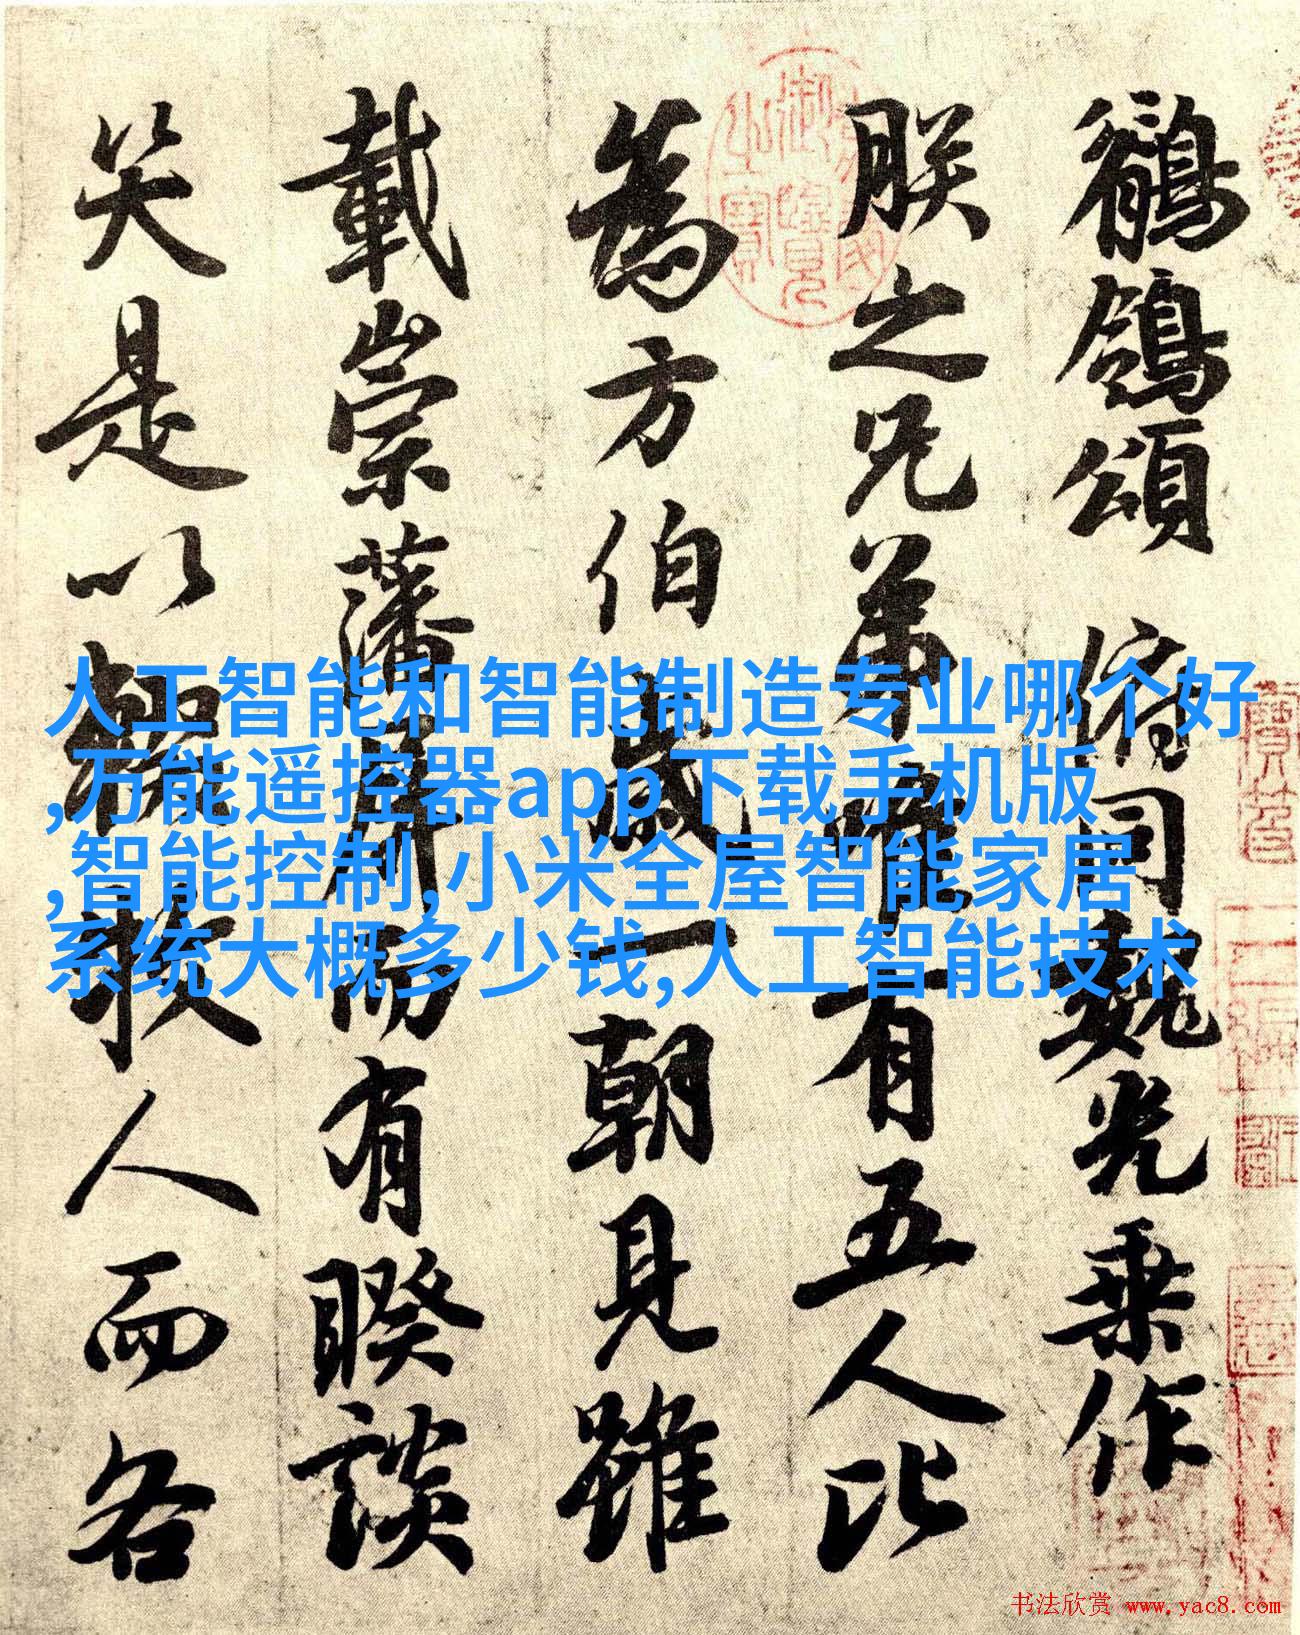 鶺鴒頌 俯同魏光乘作
朕之兄弟唯有五人比
為方伯歲一朝見雖
載崇藩屏而有睽談
笑是以輟牧人而各
人工智能和智能制造专业哪个好
,万能遥控器app下载手机版
,智能控制,小米全屋智能家居
系统大概多少钱,人工智能技术
书法欣赏 www.yac8.com